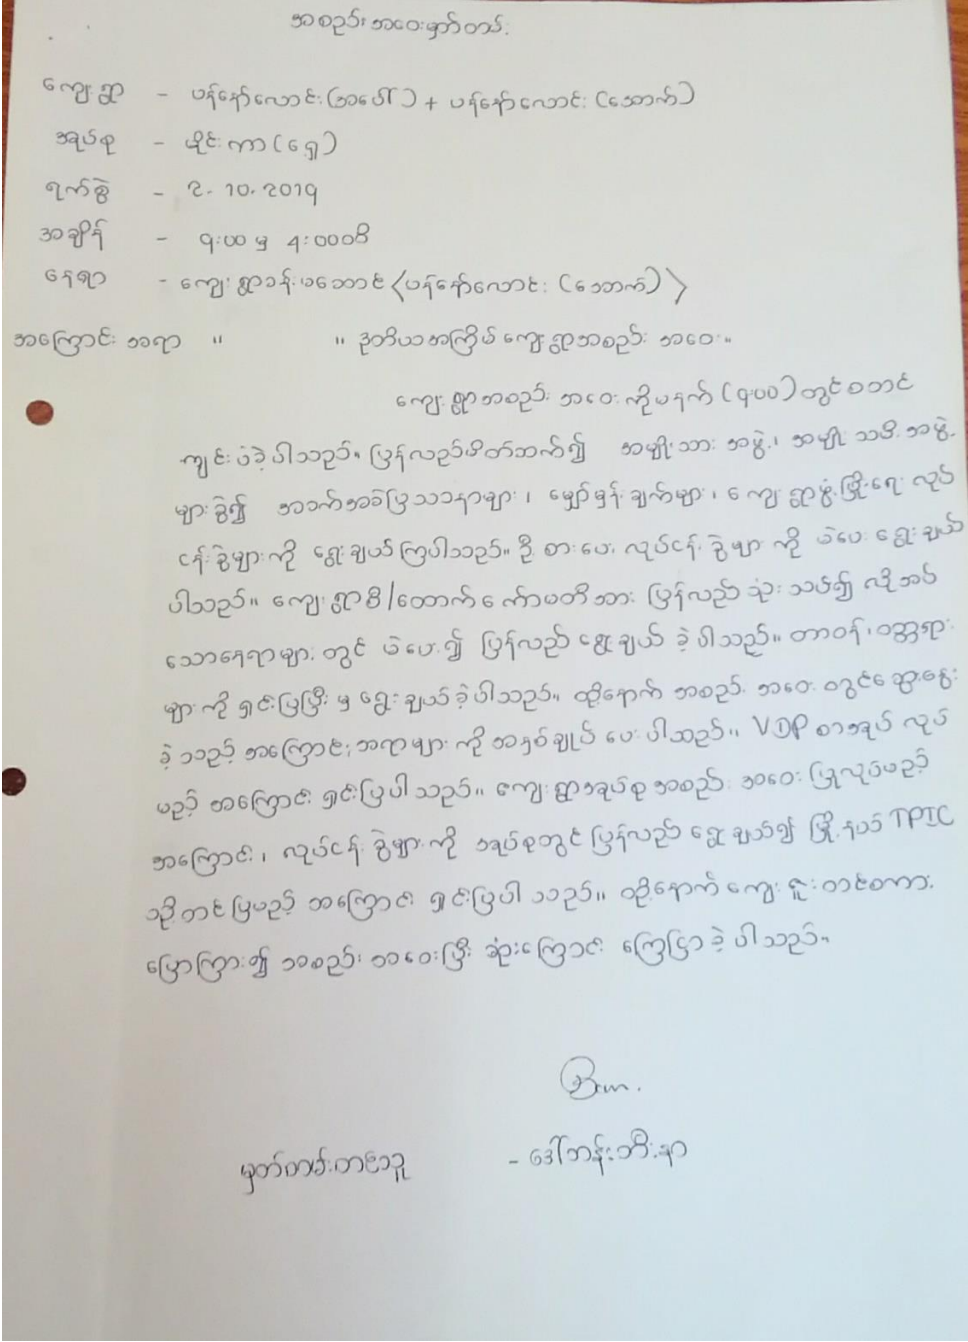 အစည်းအဝေးမှတ်တမ်း
ကျေးရွာ - ပန်နော်လောင်း(အပေါ်) + ပန်နော်လောင်း (အောက်)
အုပ်စု - မိုင်းကာ(ရှေ့)
ရက်စွဲ - 2.10.2019
အချိန် - 9:00 မှ 4:00အထိ
နေရာ - ကျေးရွာခန်းမဆောင် <ပန်နော်လောင်း (အောက်)>
အကြောင်းအရာ ။ ။ ဒုတိယအကြိမ် ကျေးရွာအစည်းအဝေး။
ကျေးရွာအစည်းအဝေးကို မနက် (9:00) တွင် စတင်
ကျင်းပခဲ့ပါသည်။ ပြန်လည်မိတ်ဆက်၍ အမျိုးသားအဖွဲ့၊ အမျိုးသမီးအဖွဲ့
များခွဲ၍ အခက်အခဲပြဿနာများ၊ မျှော်မှန်းချက်များ၊ ကျေးရွာဖွံ့ဖြိုးရေး လုပ်
ငန်းခွဲများကို ရွေးချယ်ကြပါသည်။ ဦးစားပေး လုပ်ငန်းခွဲများကို မဲပေးရွေးချယ်
ပါသည်။ ကျေးရွာစီ/ထောက်ကော်မတီအား ပြန်လည်သုံးသပ်၍ လိုအပ်
သောနေရာများတွင် မဲပေး၍ ပြန်လည်ရွေးချယ်ခဲ့ပါသည်။ တာဝန်၊ ဝတ္တရား
များကို ရှင်းပြပြီးမှ ရွေးချယ်ခဲ့ပါသည်။ ထို့နောက် အစည်းအဝေးတွင် ဆွေးနွေး
ခဲ့သည့် အကြောင်းအရာများကို အနှစ်ချုပ်ပေးပါသည်။ VDP စာအုပ် လုပ်
မည့်အကြောင်း ရှင်းပြပါသည်။ ကျေးရွာအုပ်စုအစည်းအဝေး ပြုလုပ်မည့်
အကြောင်း၊ လုပ်ငန်းခွဲများကို အုပ်စုတွင် ပြန်လည်ရွေးချယ်၍ မြို့နယ် TPIC
သို့ တင်ပြမည့်အကြောင်း ရှင်းပြပါသည်။ ထို့နောက် ကျေးဇူးတင်စကား
ပြောကြား၍ အစည်းအဝေးပြီးဆုံးကြောင်း ကြေငြာခဲ့ပါသည်။
မှတ်တမ်းတင်သူ - ဒေါ်ဘန်းဘီးနာ